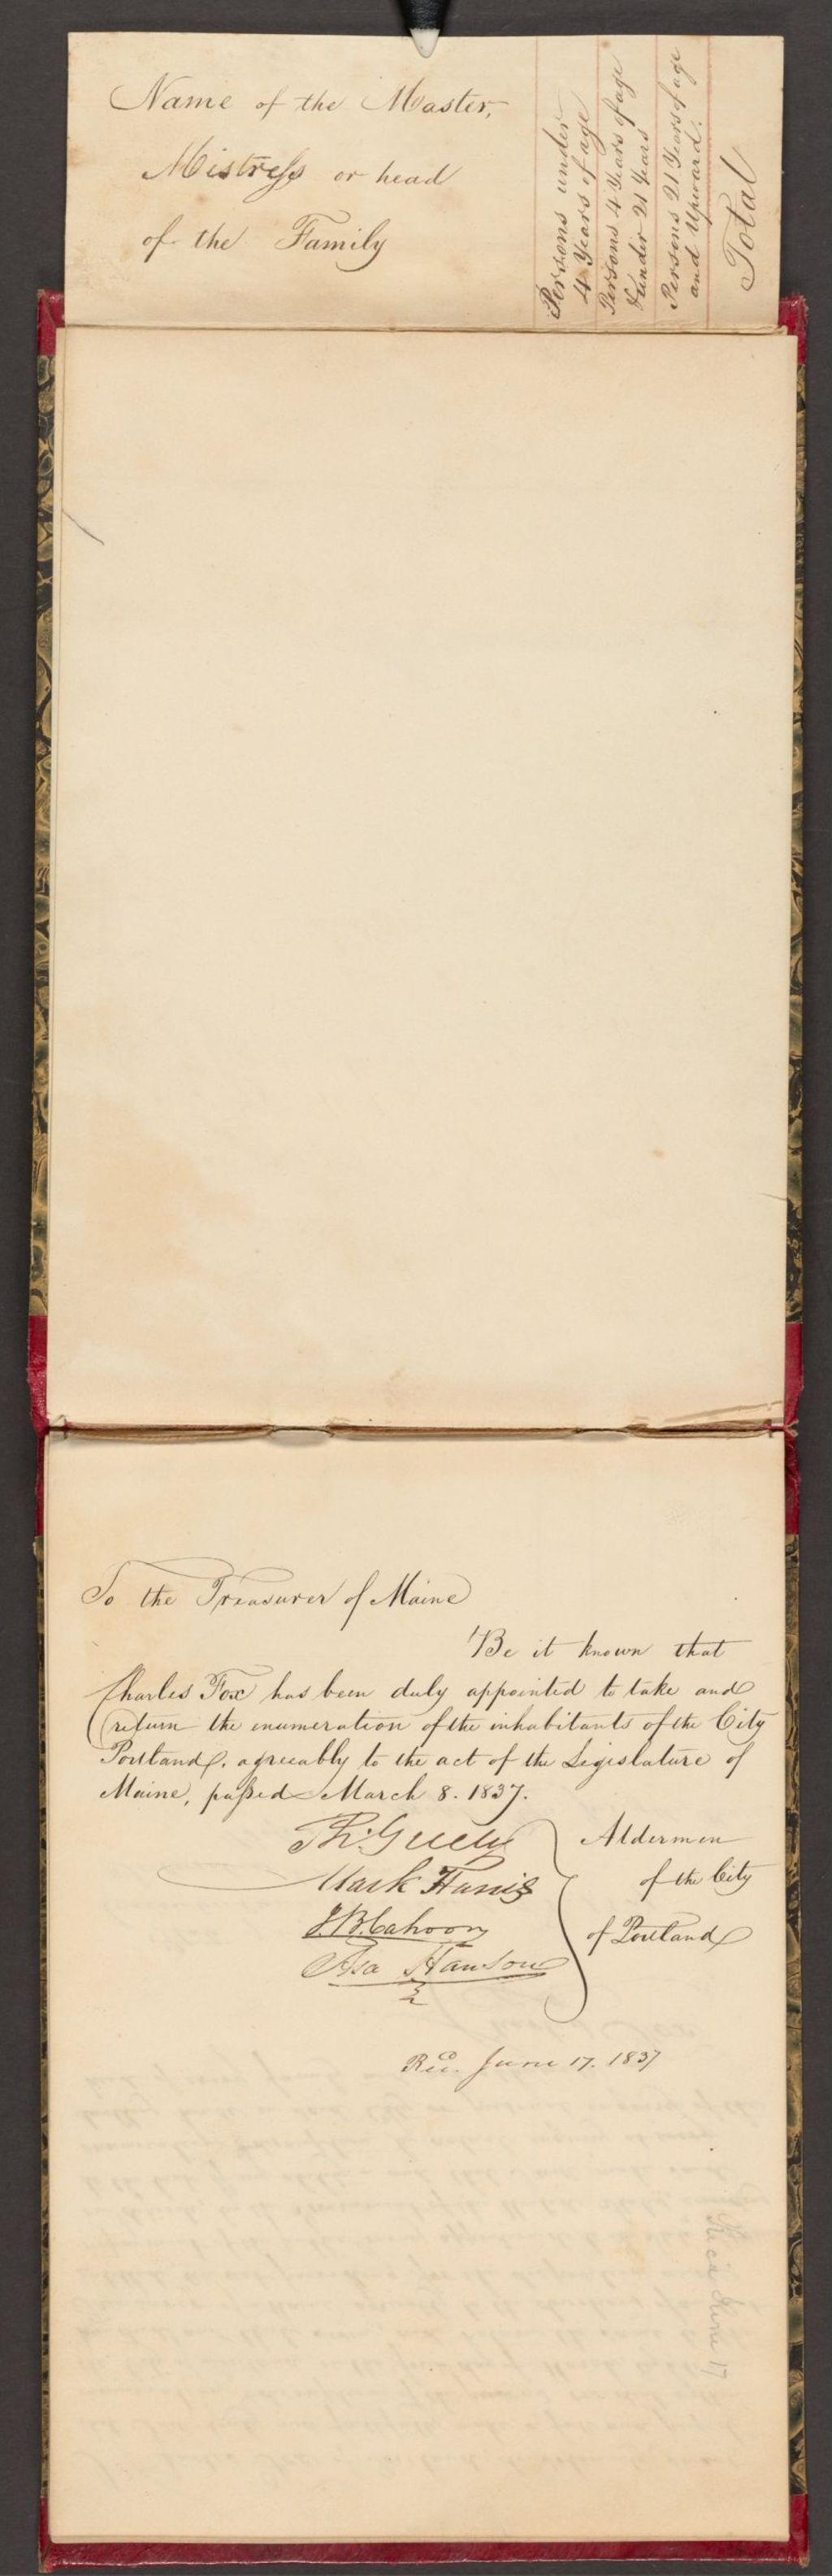 Name of the Master,
Mistress or head
of the Family
Persons under
4 Years of age
Persons 4 Years of age
& under 21 Years
Persons 21 Years of age
and Upward.
Total
To the Treasurer of Maine
Be it known that
Charles Fox has been duly appointed to take and
return the enumeration of the inhabitants of the City
Portland, agreeably to the act of the Legislature of
Maine, passed March 8. 1837.
Mark Harris
J.B. Cahoon
Asa Hanson
Aldermen
of the City
of Portland
Rec. June 17. 1837
June 17